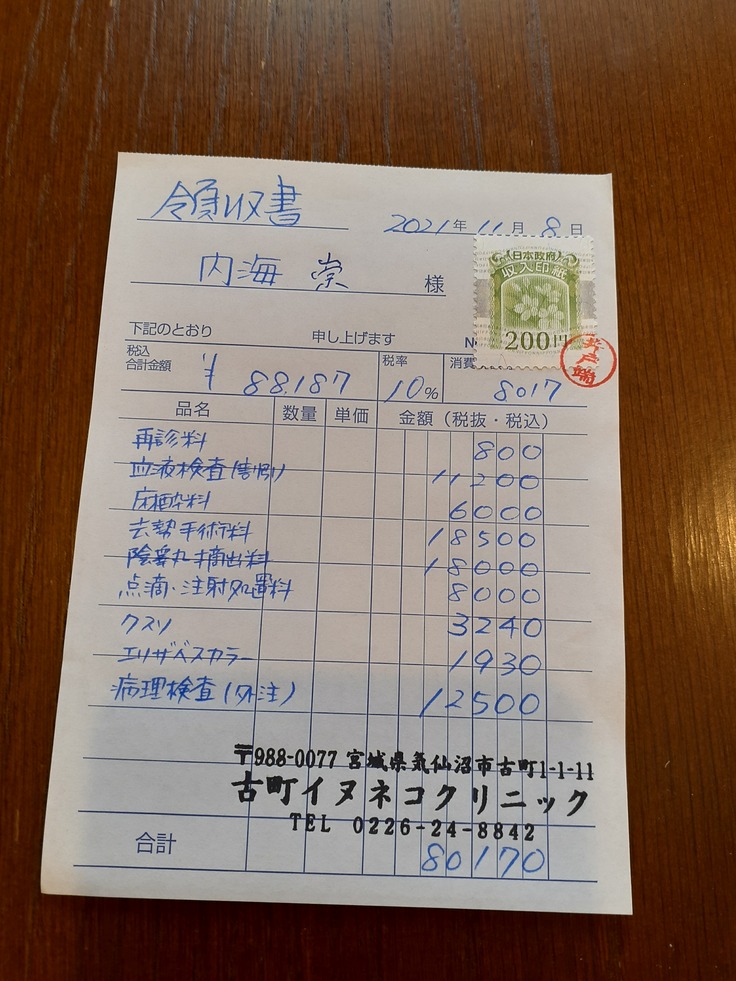 領収書
2021年11月8日
内海 崇 様
日本政府
収入印紙
200円
下記のとおり 申し上げます
井戸端
税込合計金額 ¥88,187 税率 10% 消費 8017
品名 数量 単価 金額（税抜・税込）
再診料 800
血液検査(割引) 11200
麻酔料 6000
去勢手術料 18500
陰睾丸摘出料 18000
点滴・注射処置料 8000
クスリ 3240
エリザベスカラー 1930
病理検査(外注) 12500
〒988-0077 宮城県気仙沼市古町1-1-11
古町イヌネコクリニック
TEL 0226-24-8842
合計 80170